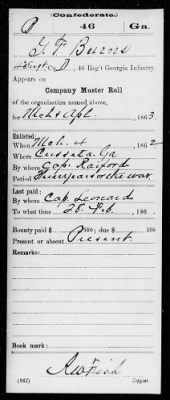 (Confederate.)
46 Ga.
Burns
Co. D, 46 Reg't Georgia Infantry.
Appears on
Company Muster Roll
of the organization named above,
for Mch & Apl, 1863
Enlisted:
When Mch. 4, 1862
Where Cusseta Ga
By whom Cap. Raiford
Period 3 years or the war
Last paid:
By whom Cap. Leonard
To what time 28 Feb, 186
Bounty paid $ 100; due $ 100
Present or absent Present
Remarks:
Book mark:
(642) Copyist.